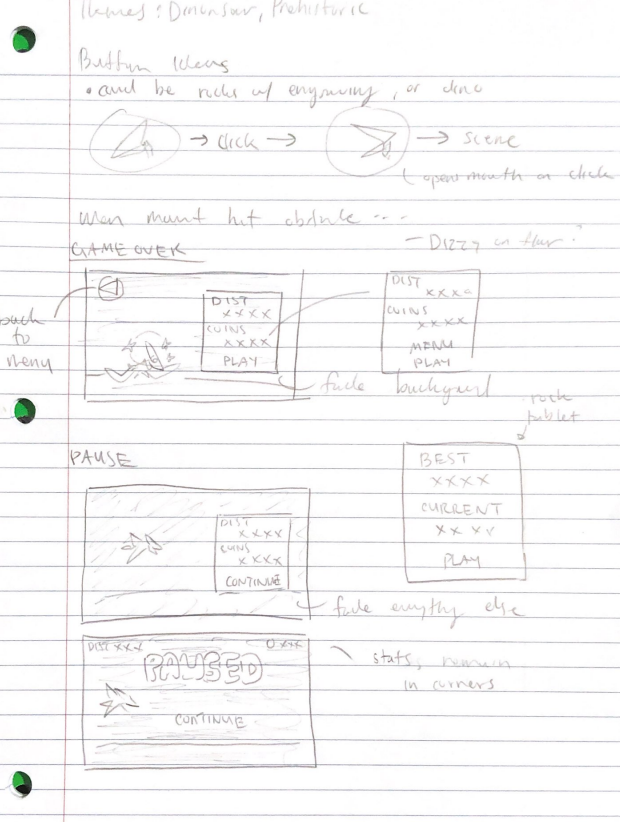 Themes: Dinosaur, Prehistoric
Button Ideas
• could be rocks w/ engraving, or dino
→ click → → scene
( opens mouth on click
when mount hit obstacle ...
— Dizzy on floor?
GAME OVER
DIST
xxxx
COINS
xxxx
PLAY
back
to
menu
DIST
xxxx
COINS
xxxx
MENU
PLAY
fade background
rock
tablet
PAUSE
BEST
xxxx
CURRENT
xxxx
PLAY
DIST
xxxx
COINS
xxxx
CONTINUE
fade everything else
DIST xxx
O xxx
PAUSED
CONTINUE
stats, remain
in corners